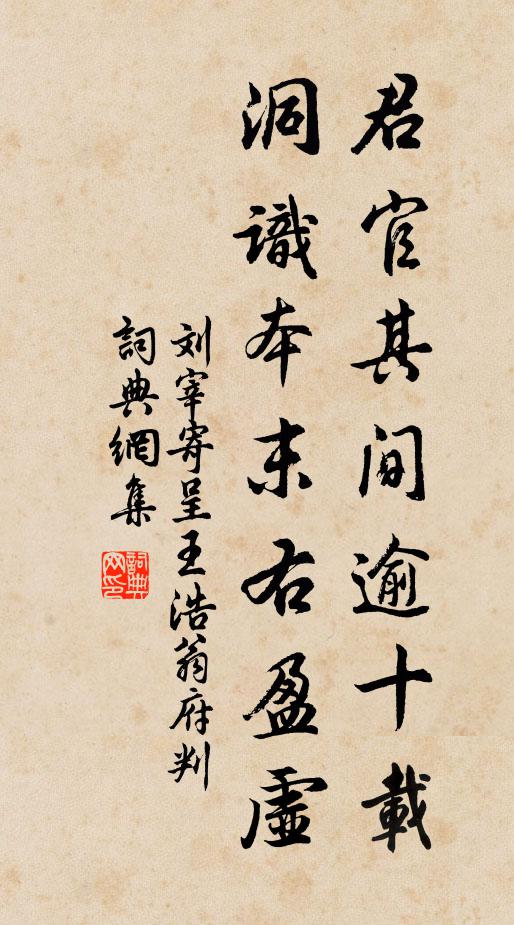 君官其間逾十載
洞識本末右盈虛
刘宰寄呈王浩翁府判
詞典網集
詞典網印